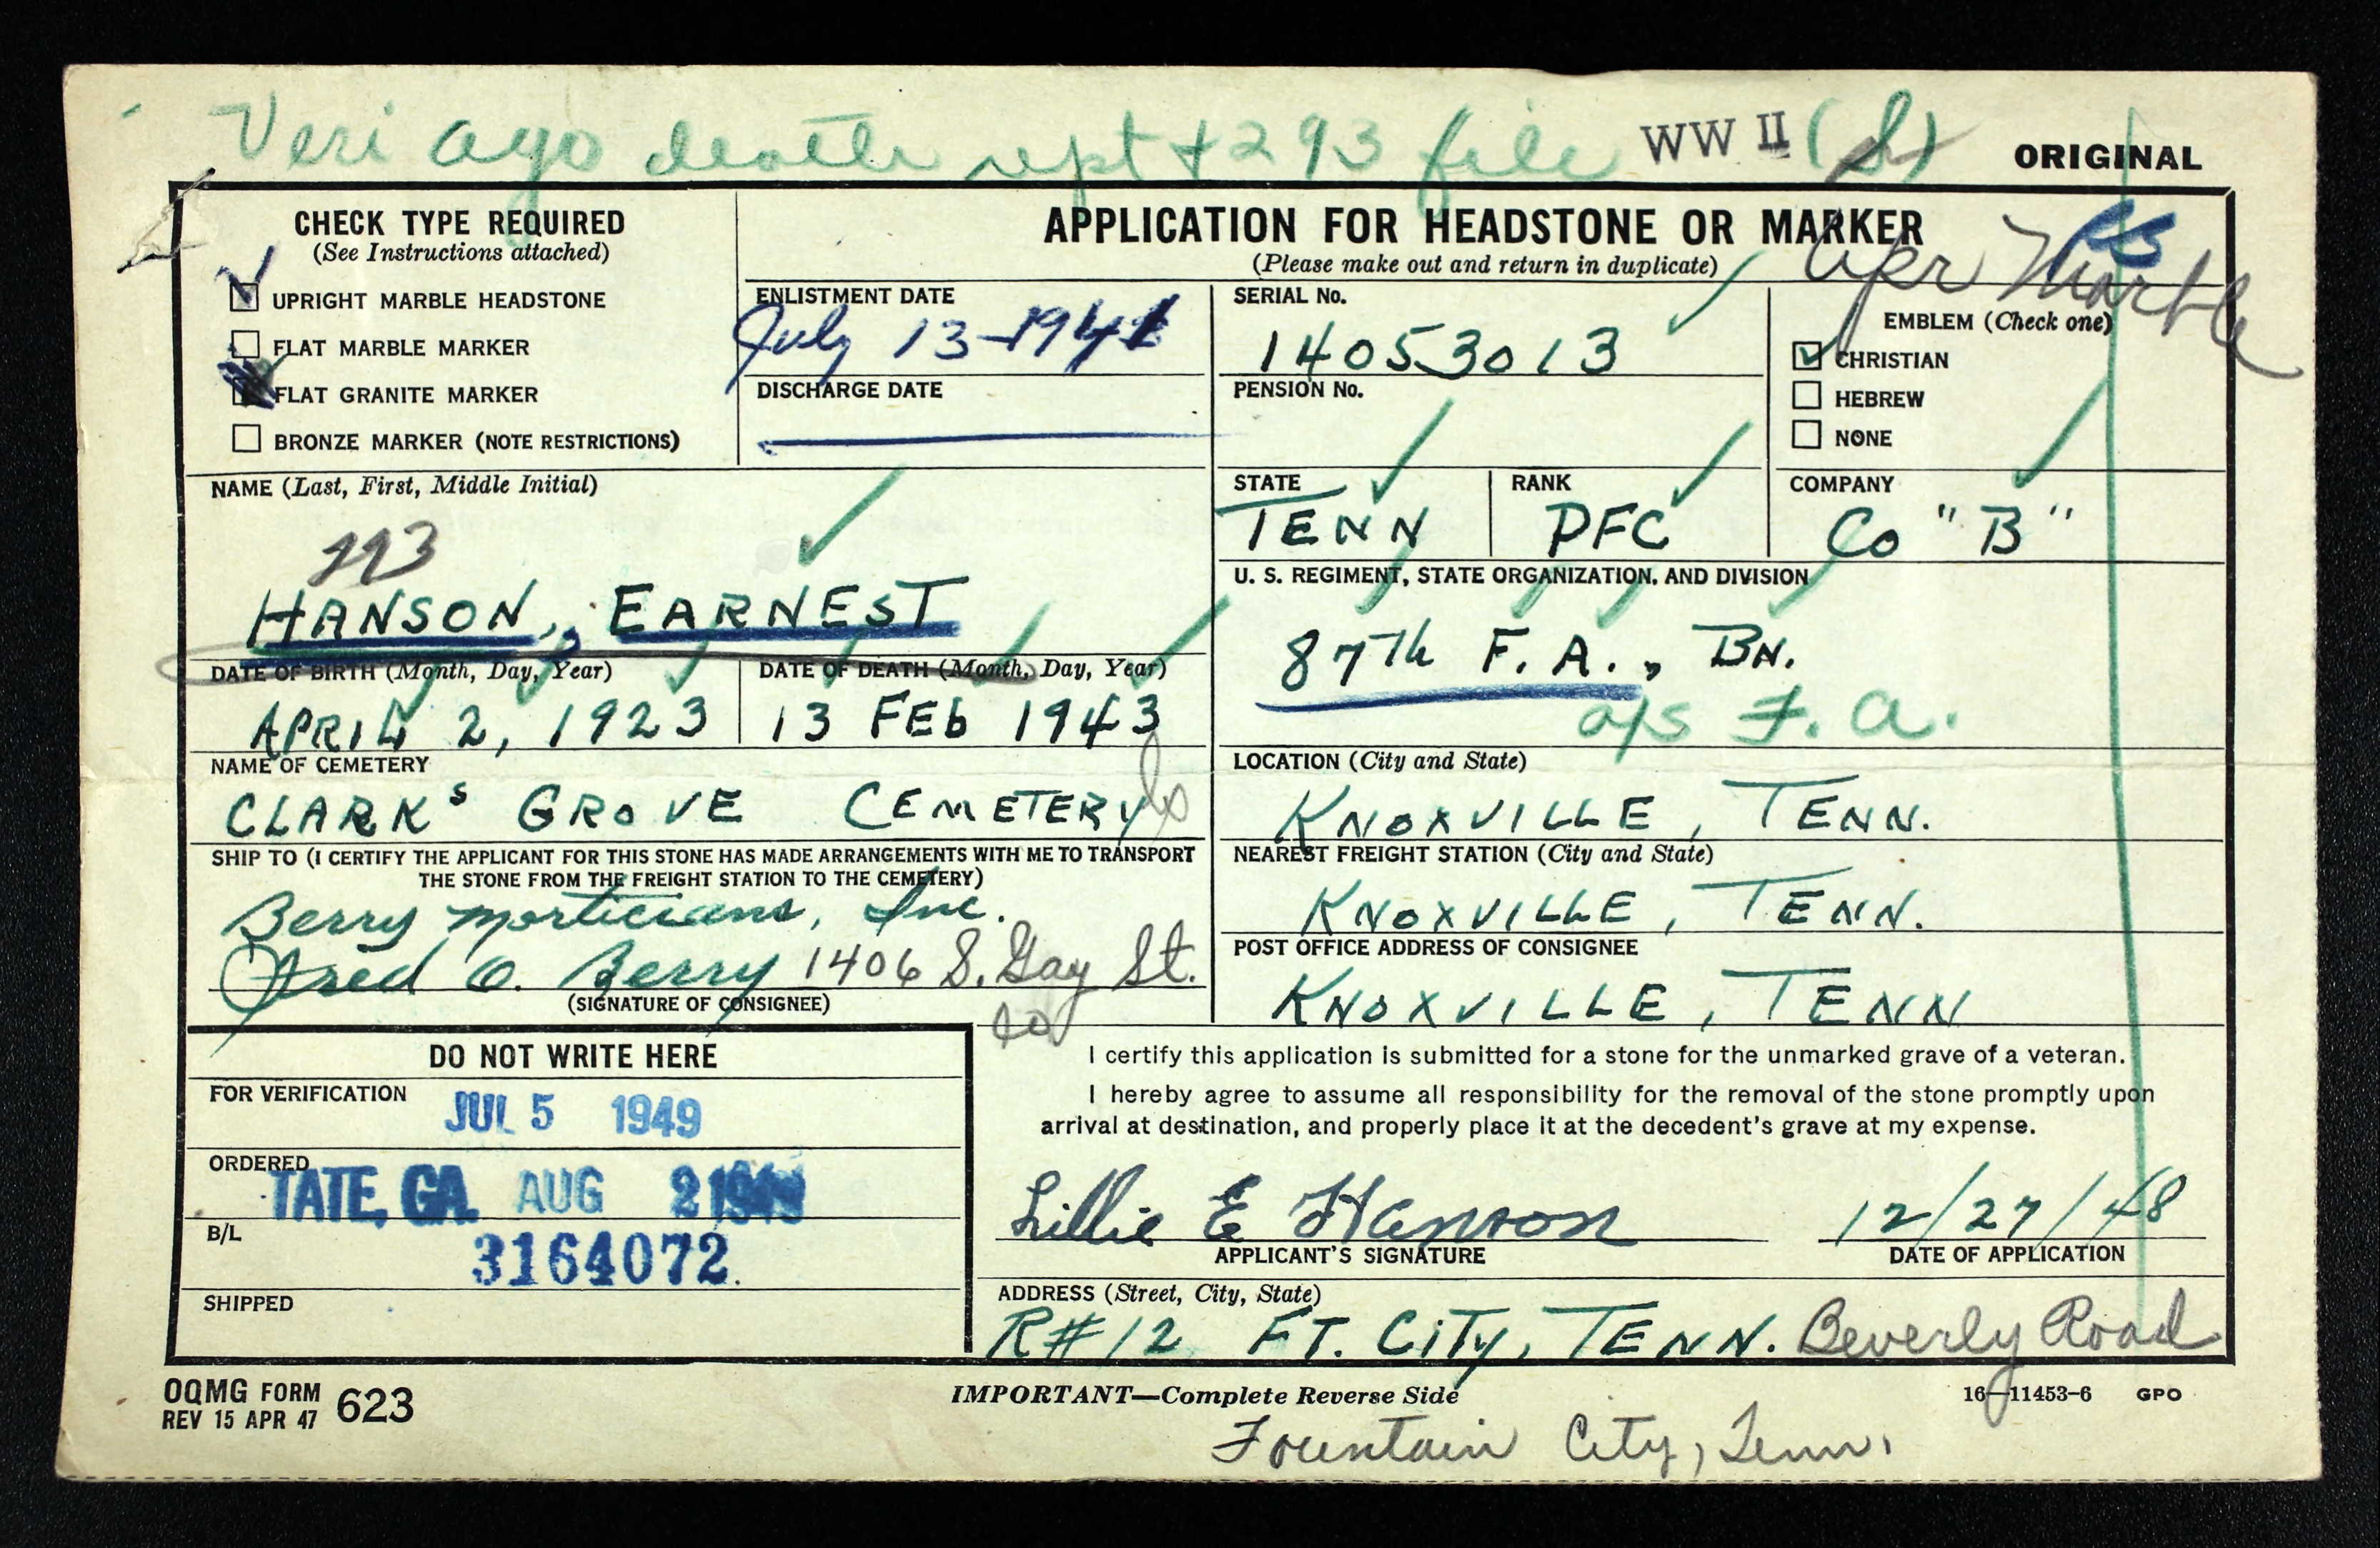 Veri ago death rept + 293 file WW II (S) ORIGINAL
CHECK TYPE REQUIRED
(See Instructions attached)
UPRIGHT MARBLE HEADSTONE
FLAT MARBLE MARKER
FLAT GRANITE MARKER
BRONZE MARKER (NOTE RESTRICTIONS)
APPLICATION FOR HEADSTONE OR MARKER
(Please make out and return in duplicate)
Upr Marble
ENLISTMENT DATE
July 13-1941
DISCHARGE DATE
SERIAL No.
14053013
PENSION No.
EMBLEM (Check one)
CHRISTIAN
HEBREW
NONE
NAME (Last, First, Middle Initial)
HANSON, EARNEST
STATE
TENN
RANK
PFC
COMPANY
Co "B"
U. S. REGIMENT, STATE ORGANIZATION, AND DIVISION
87Th F. A., BN.
o/s F. A.
DATE OF BIRTH (Month, Day, Year)
APRIL 2, 1923
DATE OF DEATH (Month, Day, Year)
13 FEb 1943
NAME OF CEMETERY
CLARKs GROVE CEMETERY
LOCATION (City and State)
KNOXVILLE, TENN.
SHIP TO (I CERTIFY THE APPLICANT FOR THIS STONE HAS MADE ARRANGEMENTS WITH ME TO TRANSPORT
THE STONE FROM THE FREIGHT STATION TO THE CEMETERY)
Berry Morticians, Inc.
Fred O. Berry 1406 S. Gay St.
(SIGNATURE OF CONSIGNEE)
NEAREST FREIGHT STATION (City and State)
KNOXVILLE, TENN.
POST OFFICE ADDRESS OF CONSIGNEE
KNOXVILLE, TENN
DO NOT WRITE HERE
FOR VERIFICATION
JUL 5 1949
ORDERED
TATE, GA. AUG 2 1949
B/L
3164072
SHIPPED
I certify this application is submitted for a stone for the unmarked grave of a veteran.
I hereby agree to assume all responsibility for the removal of the stone promptly upon
arrival at destination, and properly place it at the decedent's grave at my expense.
Lillie E Hanson 12/27/48
APPLICANT'S SIGNATURE DATE OF APPLICATION
ADDRESS (Street, City, State)
R#12 FT. CiTy, TENN. Beverly Road
OQMG FORM 623
REV 15 APR 47
IMPORTANT—Complete Reverse Side
16—11453-6 GPO
Fountain City, Tenn.